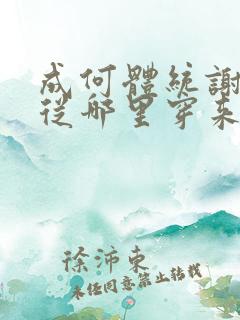 成何體統謝
從哪里穿來
徐沛東
未经同意禁止转载